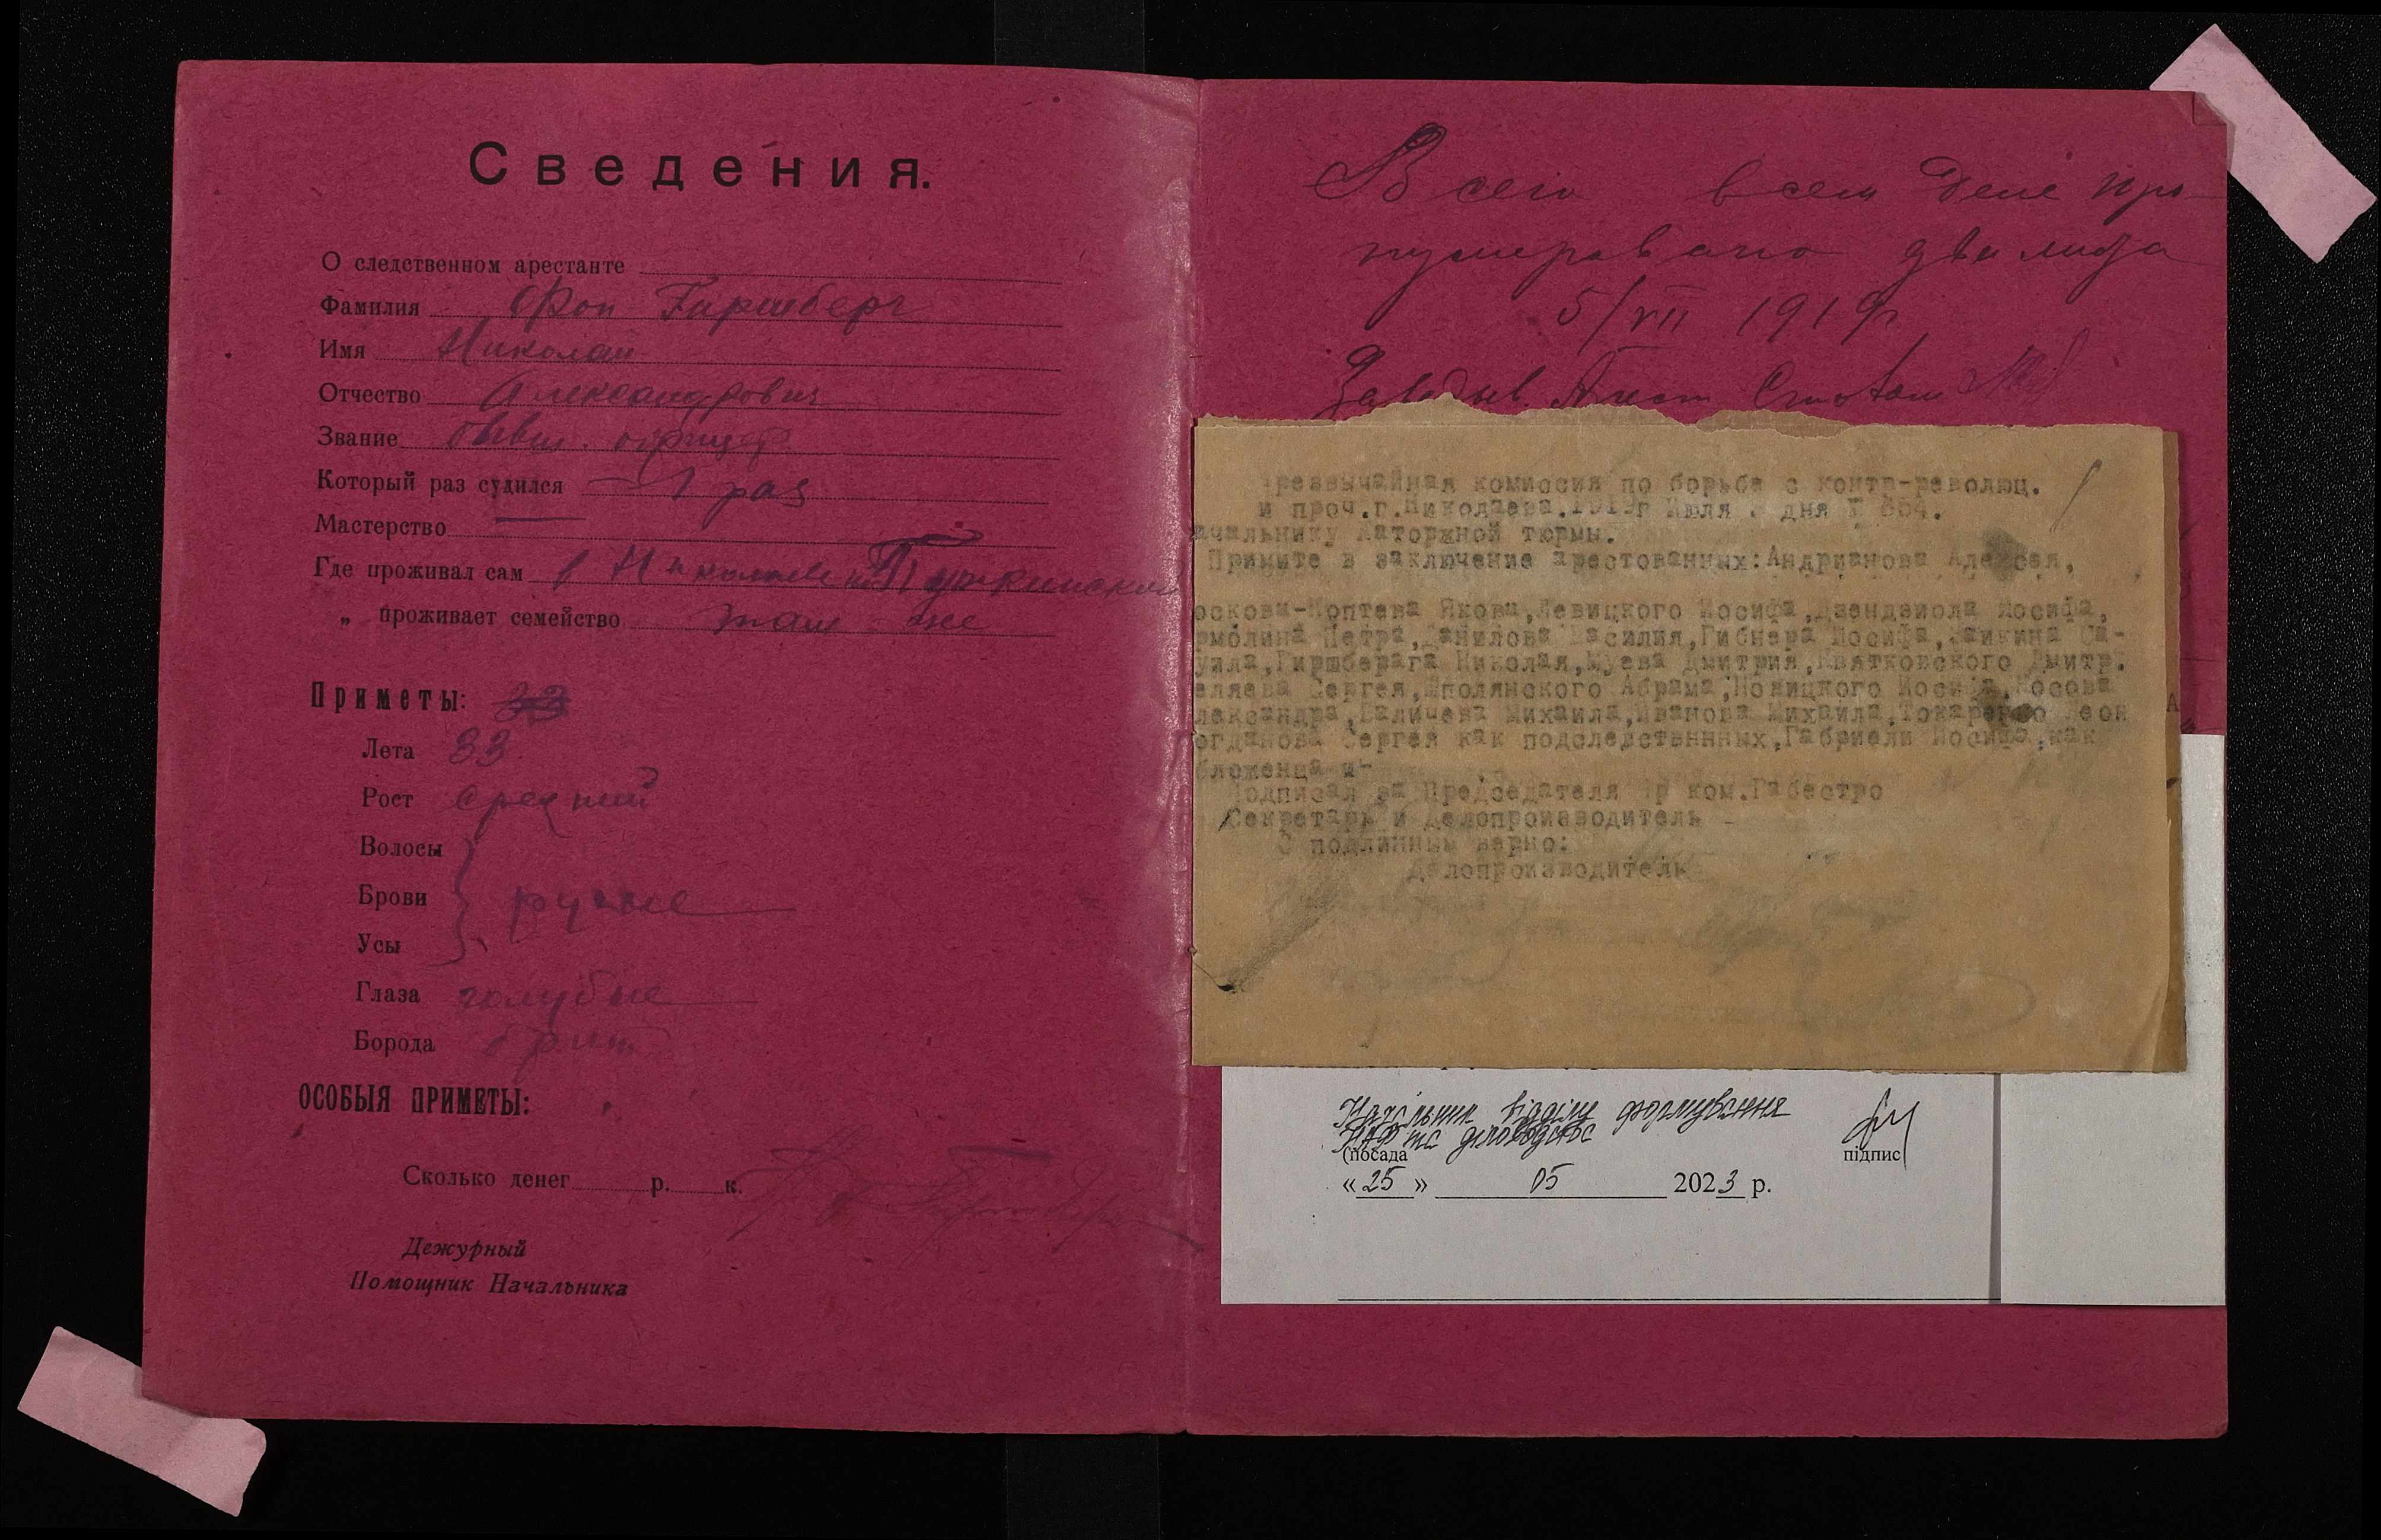 Сведения.
О следственном арестанте
Фамилия Фон Гиршберг
Имя Николай
Отчество Александрович
Звание бывш. офицер
Который раз судился — 1 раз
Мастерство —
Где проживал сам г Николаев
„ проживает семейство там - же
Приметы: 33
Лета 33
Рост средний
Волосы
Брови } русые
Усы
Глаза голубые
Борода брит
ОСОБЫЯ ПРИМЕТЫ:
Сколько денег р. к.
Дежурный
Помощник Начальника
Всего всем деле про-
нумеровано два листа
5/VII 1919г
Заведыв. Арест Столом
резвычайная комиссия по борьбе с контр-революц.
и проч.г.Николаева.1919г Июля дня
ачальнику Каторжной тюрьмы.
Примите в заключение арестованных:Андрианова Алексея,
оскова-Коптева Якова,Левицкого Иосифа, Иосифа,
рмолина Петра,Данилова Василия,Гибнера Иосифа,Заикина Са-
уила,Гиршберага Николая,Муева Дмитрия,Квятковского Дмитр.
еляева Сергея,Шполянского Абрама,Новицкого Иосифа,Косова
лександра,Галичева Михаила,Иванова Михаила,Токаренко Леон
огданова Сергея как подследственнных,Габриели Иосифа,как
бложенца и-
Подписал за Председателя Чр ком.Габестро
Секретарь и Делопроизводитель -
С подлинным верно:
Делопроизводитель
Начальник відділу формування
НАФ та діловодства
(посада підпис
« 25 » 05 2023 р.